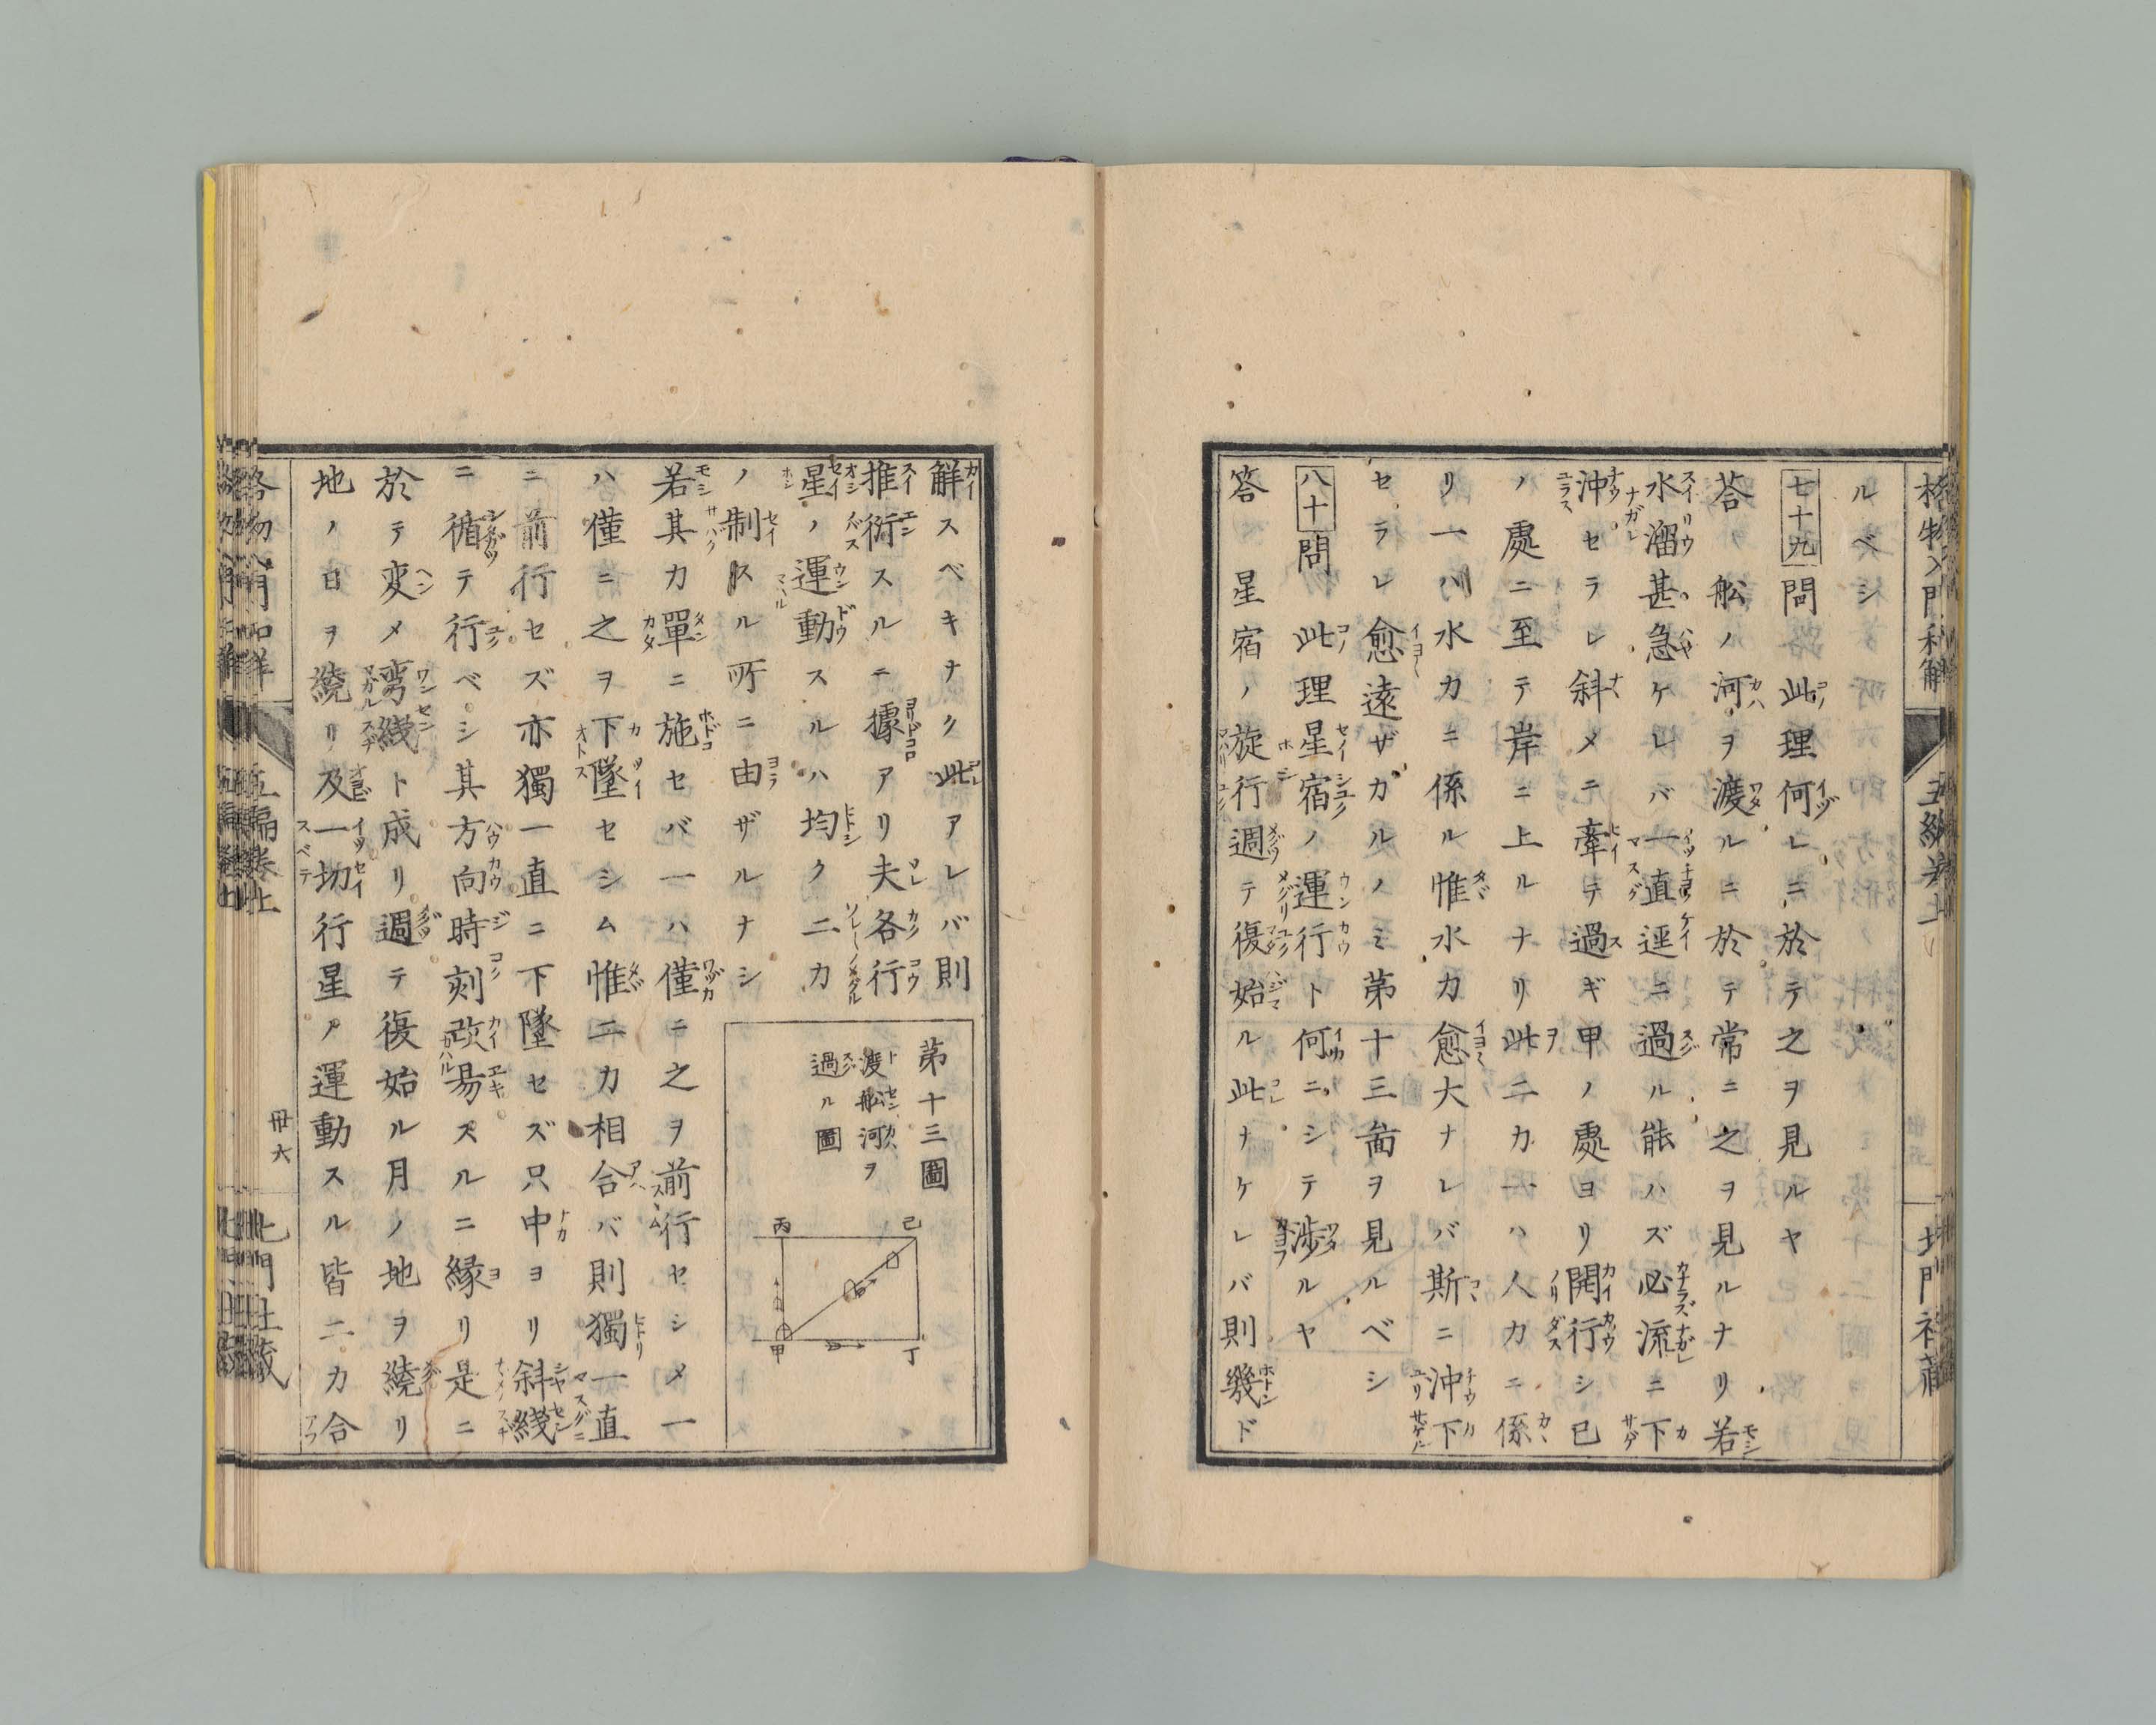 格物入門和解
五編卷上
北門社藏
ルベシ
七十九 問 此理何レニ於テ之ヲ見ルヤ
荅 舩ノ河ヲ渡ルニ於テ常ニ之ヲ見ルナリ若
水溜甚急ケレバ一直逕ニ過ル能ハズ必流ニ下
沖セラレ斜メニ牽テ過ギ甲ノ處ヨリ開行シ已
ノ處ニ至テ岸ニ上ルナリ此二力一ハ人力ニ係
リ一ハ水力ニ係ル惟水力愈大ナレバ斯ニ沖下
セラレ愈遠ザカルノミ第十三啚ヲ見ルベシ
八十 問 此理星宿ノ運行ト何ニシテ渉ルヤ
答 星宿ノ旋行週テ復始ル此ナケレバ則幾ド
解スベキナク此アレバ則
推衍スルニ據アリ夫各行
星ノ運動スルハ均ク二力
ノ制スル所ニ由ザルナシ
第十三圖
渡舩河ヲ
過ル圖
丙
己
甲
丁
若其力單ニ施セバ一ハ僅ニ之ヲ前行セシメ一
ハ僅ニ之ヲ下墜セシム惟二力相合バ則獨一直
ニ前行セズ亦獨一直ニ下墜セズ只中ヨリ斜綫
ニ循テ行ベシ其方向時刻改易スルニ縁リ是ニ
於テ変メ彎綫ト成リ週テ復始ル月ノ地ヲ繞リ
地ノ日ヲ繞リ及一切行星ノ運動スル皆二力合
格物入門和解
五編卷上
丗六
北門社藏